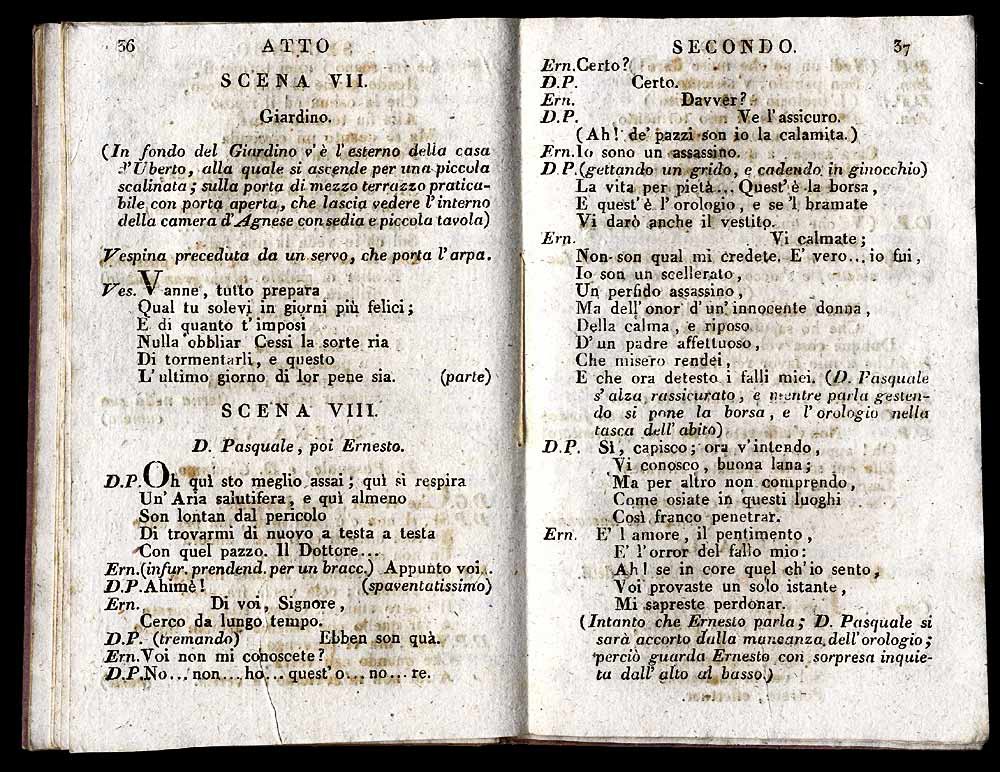 36 ATTO
SCENA VII.
Giardino.
(In fondo del Giardino v'è l'esterno della casa
d'Uberto, alla quale si ascende per una piccola
scalinata; sulla porta di mezzo terrazzo pratica-
bile con porta aperta, che lascia vedere l'interno
della camera d'Agnese con sedia e piccola tavola)
Vespina preceduta da un servo, che porta l'arpa.
Ves. Vanne, tutto prepara
Qual tu solevi in giorni più felici;
E di quanto t'imposi
Nulla obbliar Cessi la sorte ria
Di tormentarli, e questo
L'ultimo giorno di lor pene sia. (parte)
SCENA VIII.
D. Pasquale, poi Ernesto.
D.P. Oh quì sto meglio assai; quì si respira
Un' Aria salutifera, e quì almeno
Son lontan dal pericolo
Di trovarmi di nuovo a testa a testa
Con quel pazzo. Il Dottore...
Ern. (infur. prendend. per un bracc.) Appunto voi...
D.P. Ahimè! (spaventatissimo)
Ern. Di voi, Signore,
Cerco da lungo tempo.
D.P. (tremando) Ebben son quà.
Ern. Voi non mi conoscete?
D.P. No... non... ho... quest'o... no... re.
SECONDO. 37
Ern. Certo?
D.P. Certo.
Ern. Davver?
D.P. Ve l'assicuro.
(Ah! de' pazzi son io la calamita.)
Ern. Io sono un assassino.
D.P. (gettando un grido, e cadendo in ginocchio)
La vita per pietà... Quest' è la borsa,
E quest' è l'orologio, e se 'l bramate
Vi darò anche il vestito.
Ern. Vi calmate;
Non son qual mi credete. E' vero... io fui,
Io son un scellerato,
Un perfido assassino,
Ma dell'onor d'un' innocente donna,
Della calma, e riposo
D'un padre affettuoso,
Che misero rendei,
E che ora detesto i falli miei. (D. Pasquale
s'alza rassicurato, e mentre parla gesten-
do si pone la borsa, e l'orologio nella
tasca dell'abito)
D.P. Sì, capisco; ora v'intendo,
Vi conosco, buona lana;
Ma per altro non comprendo,
Come osiate in questi luoghi
Così franco penetrar.
Ern. E' l amore, il pentimento,
E' l'orror del fallo mio:
Ah! se in core quel ch'io sento,
Voi provaste un solo istante,
Mi sapreste perdonar.
(Intanto che Ernesto parla; D. Pasquale si
sarà accorto dalla muncanza dell'orologio;
perciò guarda Ernesto con sorpresa inquie-
ta dall'alto al basso.)